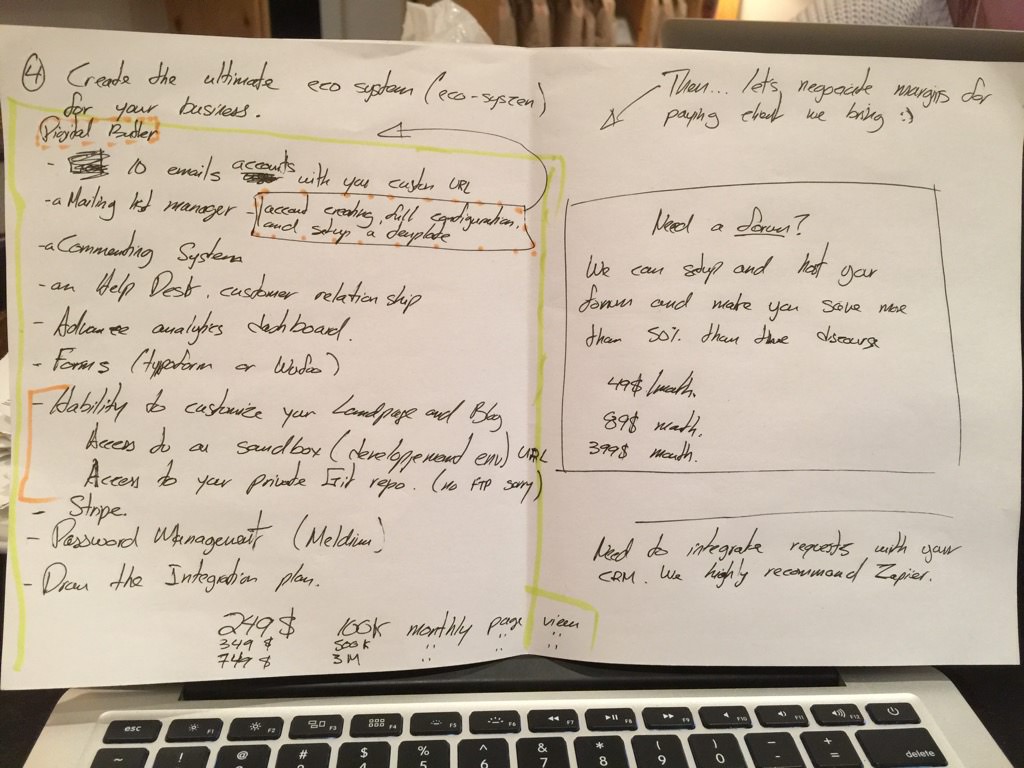 ④ Create the ultimate eco system (eco-system)
for your business.
Digital Butler
- 10 emails accounts with your custom URL
- a Mailing list manager - account creating, full configuration,
and setup a template
- a Commenting System
- an Help Desk. customer relationship
- Advance analytics dashboard.
- Forms (typeform or Wufoo)
- Hability to customize your Landpage and Blog
Access to an sandbox (developpement env) URL
Access to your private Git repo. (no FTP sorry)
- Stripe.
- Password Management (Meldium)
- Draw the Integration plan.
249$ 100K monthly page view
349$ 500K " " "
749$ 3M " " "
Then... let's negociate margins for
paying client we bring :)
Need a forum?
We can setup and host your
forum and make you save more
than 50% than the discourse
49$/month.
89$ month.
399$ month.
Need to integrate requests with your
CRM. We highly recommand Zapier.
esc F1 F2 F3 F4 F5 F6 F7 F8 F9 F10 F11 F12
~ ! @ # $ % ^ & * ( ) _ + delete
1 2 3 4 5 6 7 8 9 0 - =